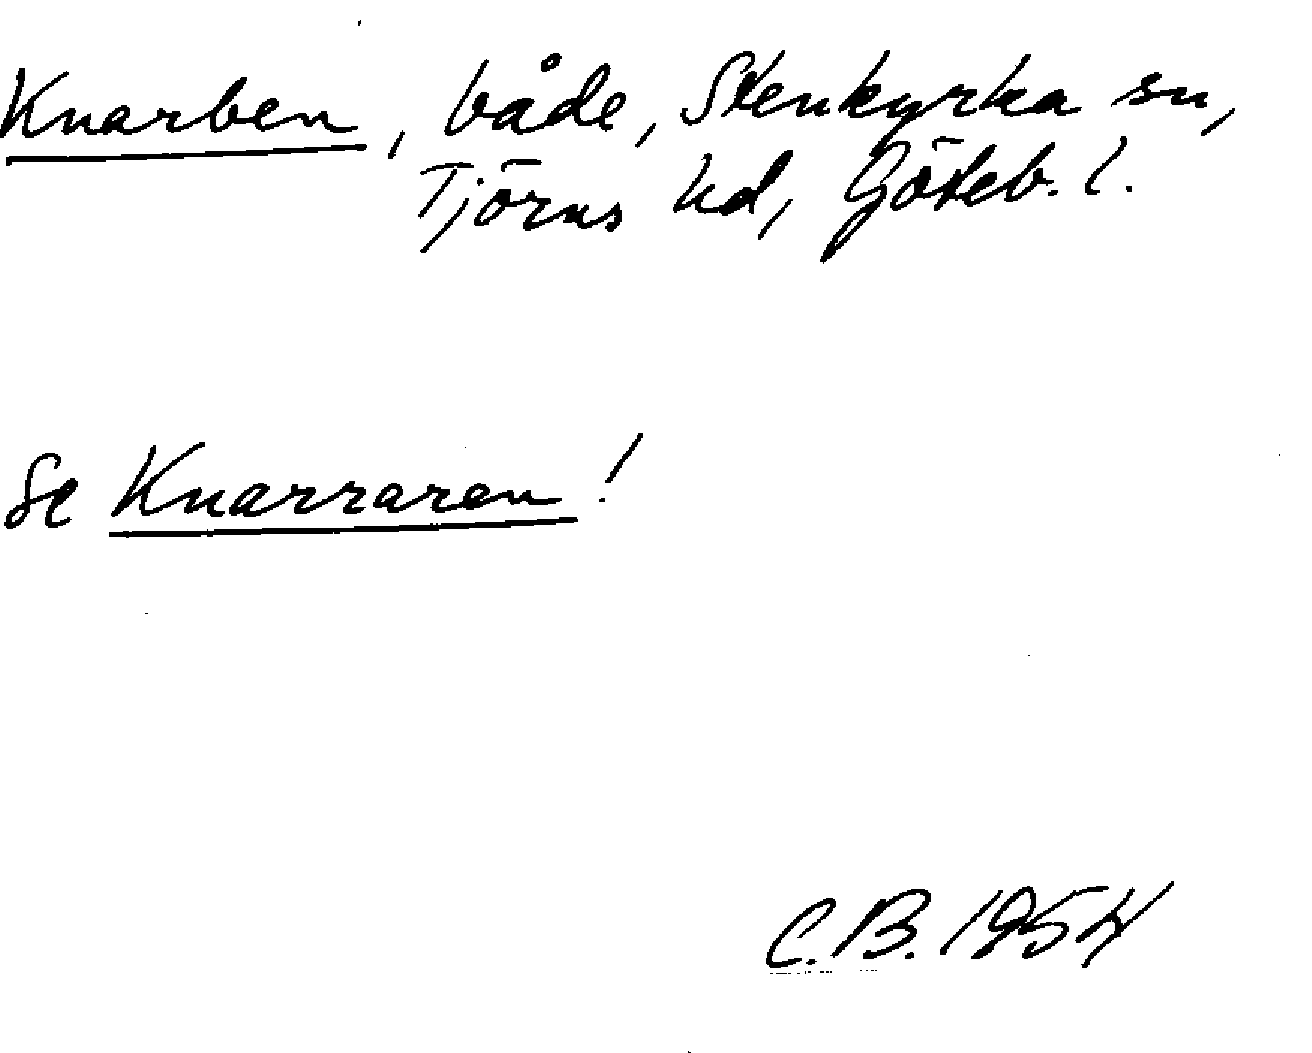 Knarben, både, Stenkyrka sn,
Tjörns hd, Göteb. l.
Se Knarraren!
C.B. 1954